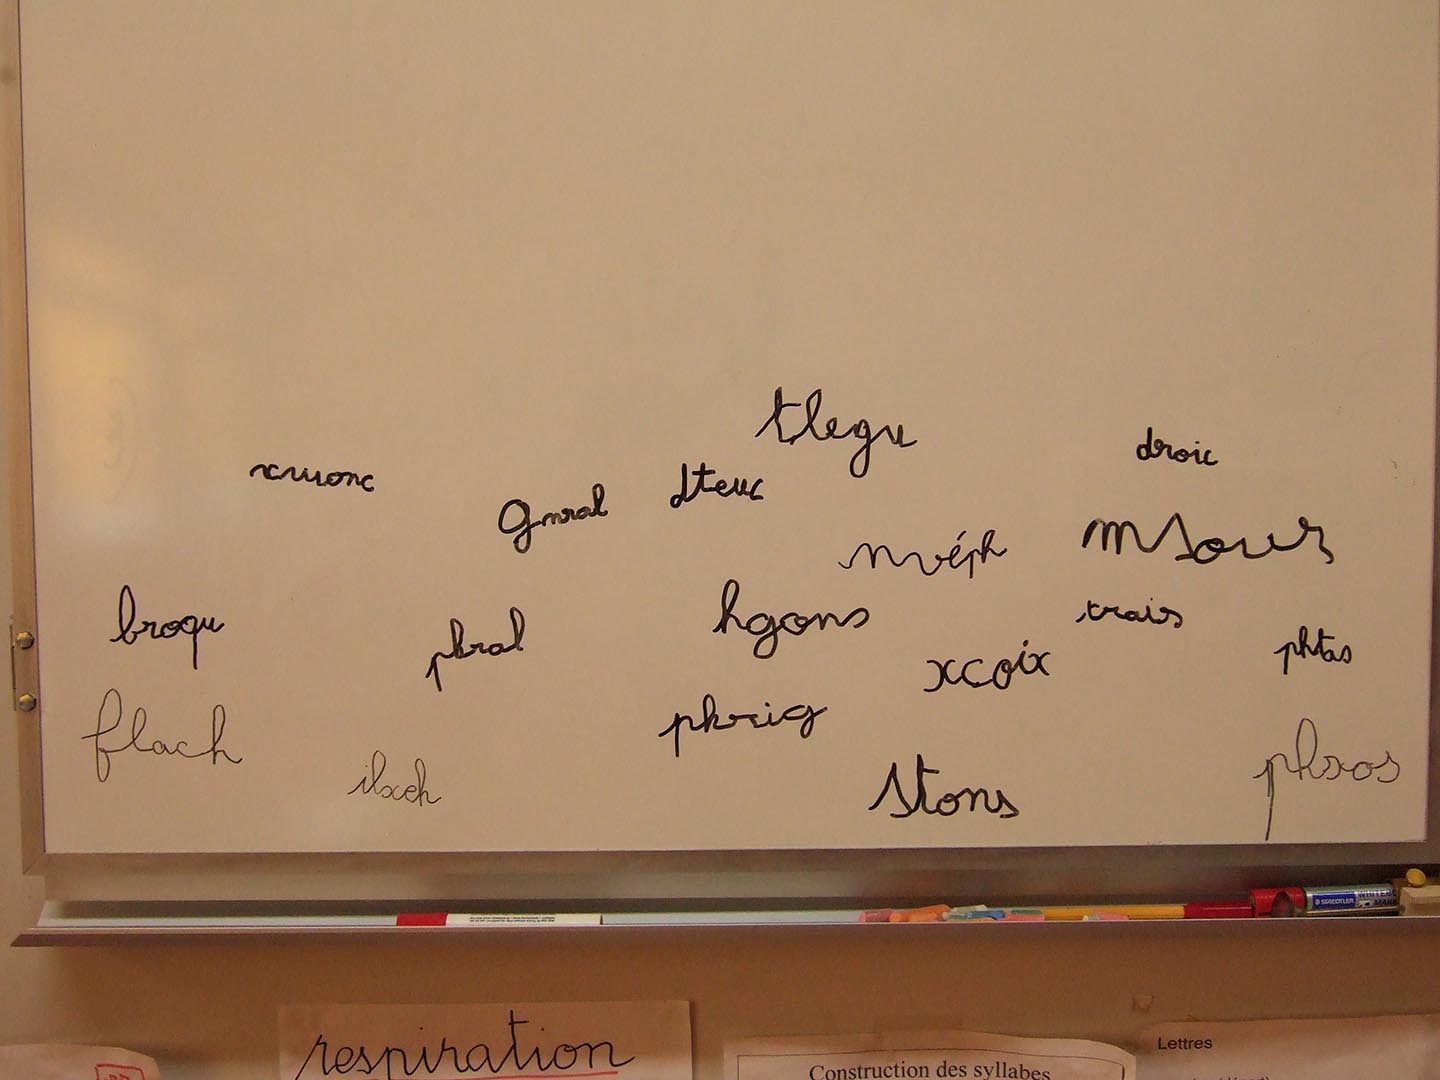 tlegu
droic
xuuonc
gnral
dteuc
nvéph
msous
broqu
pbral
hgons
trais
phtas
xcoix
flach
phrig
ilxch
stons
phxos
STAEDTLER
respiration
Construction des syllabes
Lettres